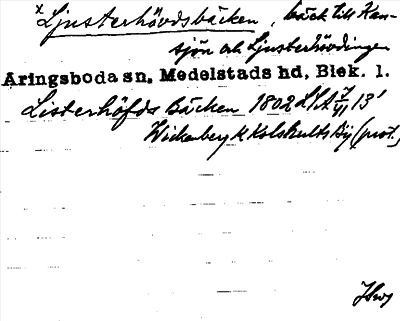 x Ljusterhövdsbäcken, bäck till Kan-
sjön och Ljusterhövdingen
Aringsboda sn. Medelstads hd, Blek. l.
Listerhöfds bäcken 1802 LSA 13'
Wickenberg K Kolshults By (prot.)